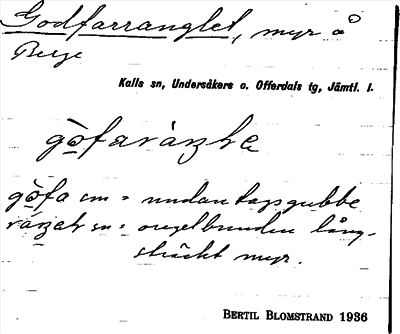 Godfarranglet, myr å
Berge
Kalls sn, Undersåkers o. Offerdals tg, Jämtl. l.
gòfaráŋle
gòfa sm = undantagsgubbe
ráŋel sn = oregelbunden lång-
sträckt myr.
BERTIL BLOMSTRAND 1936